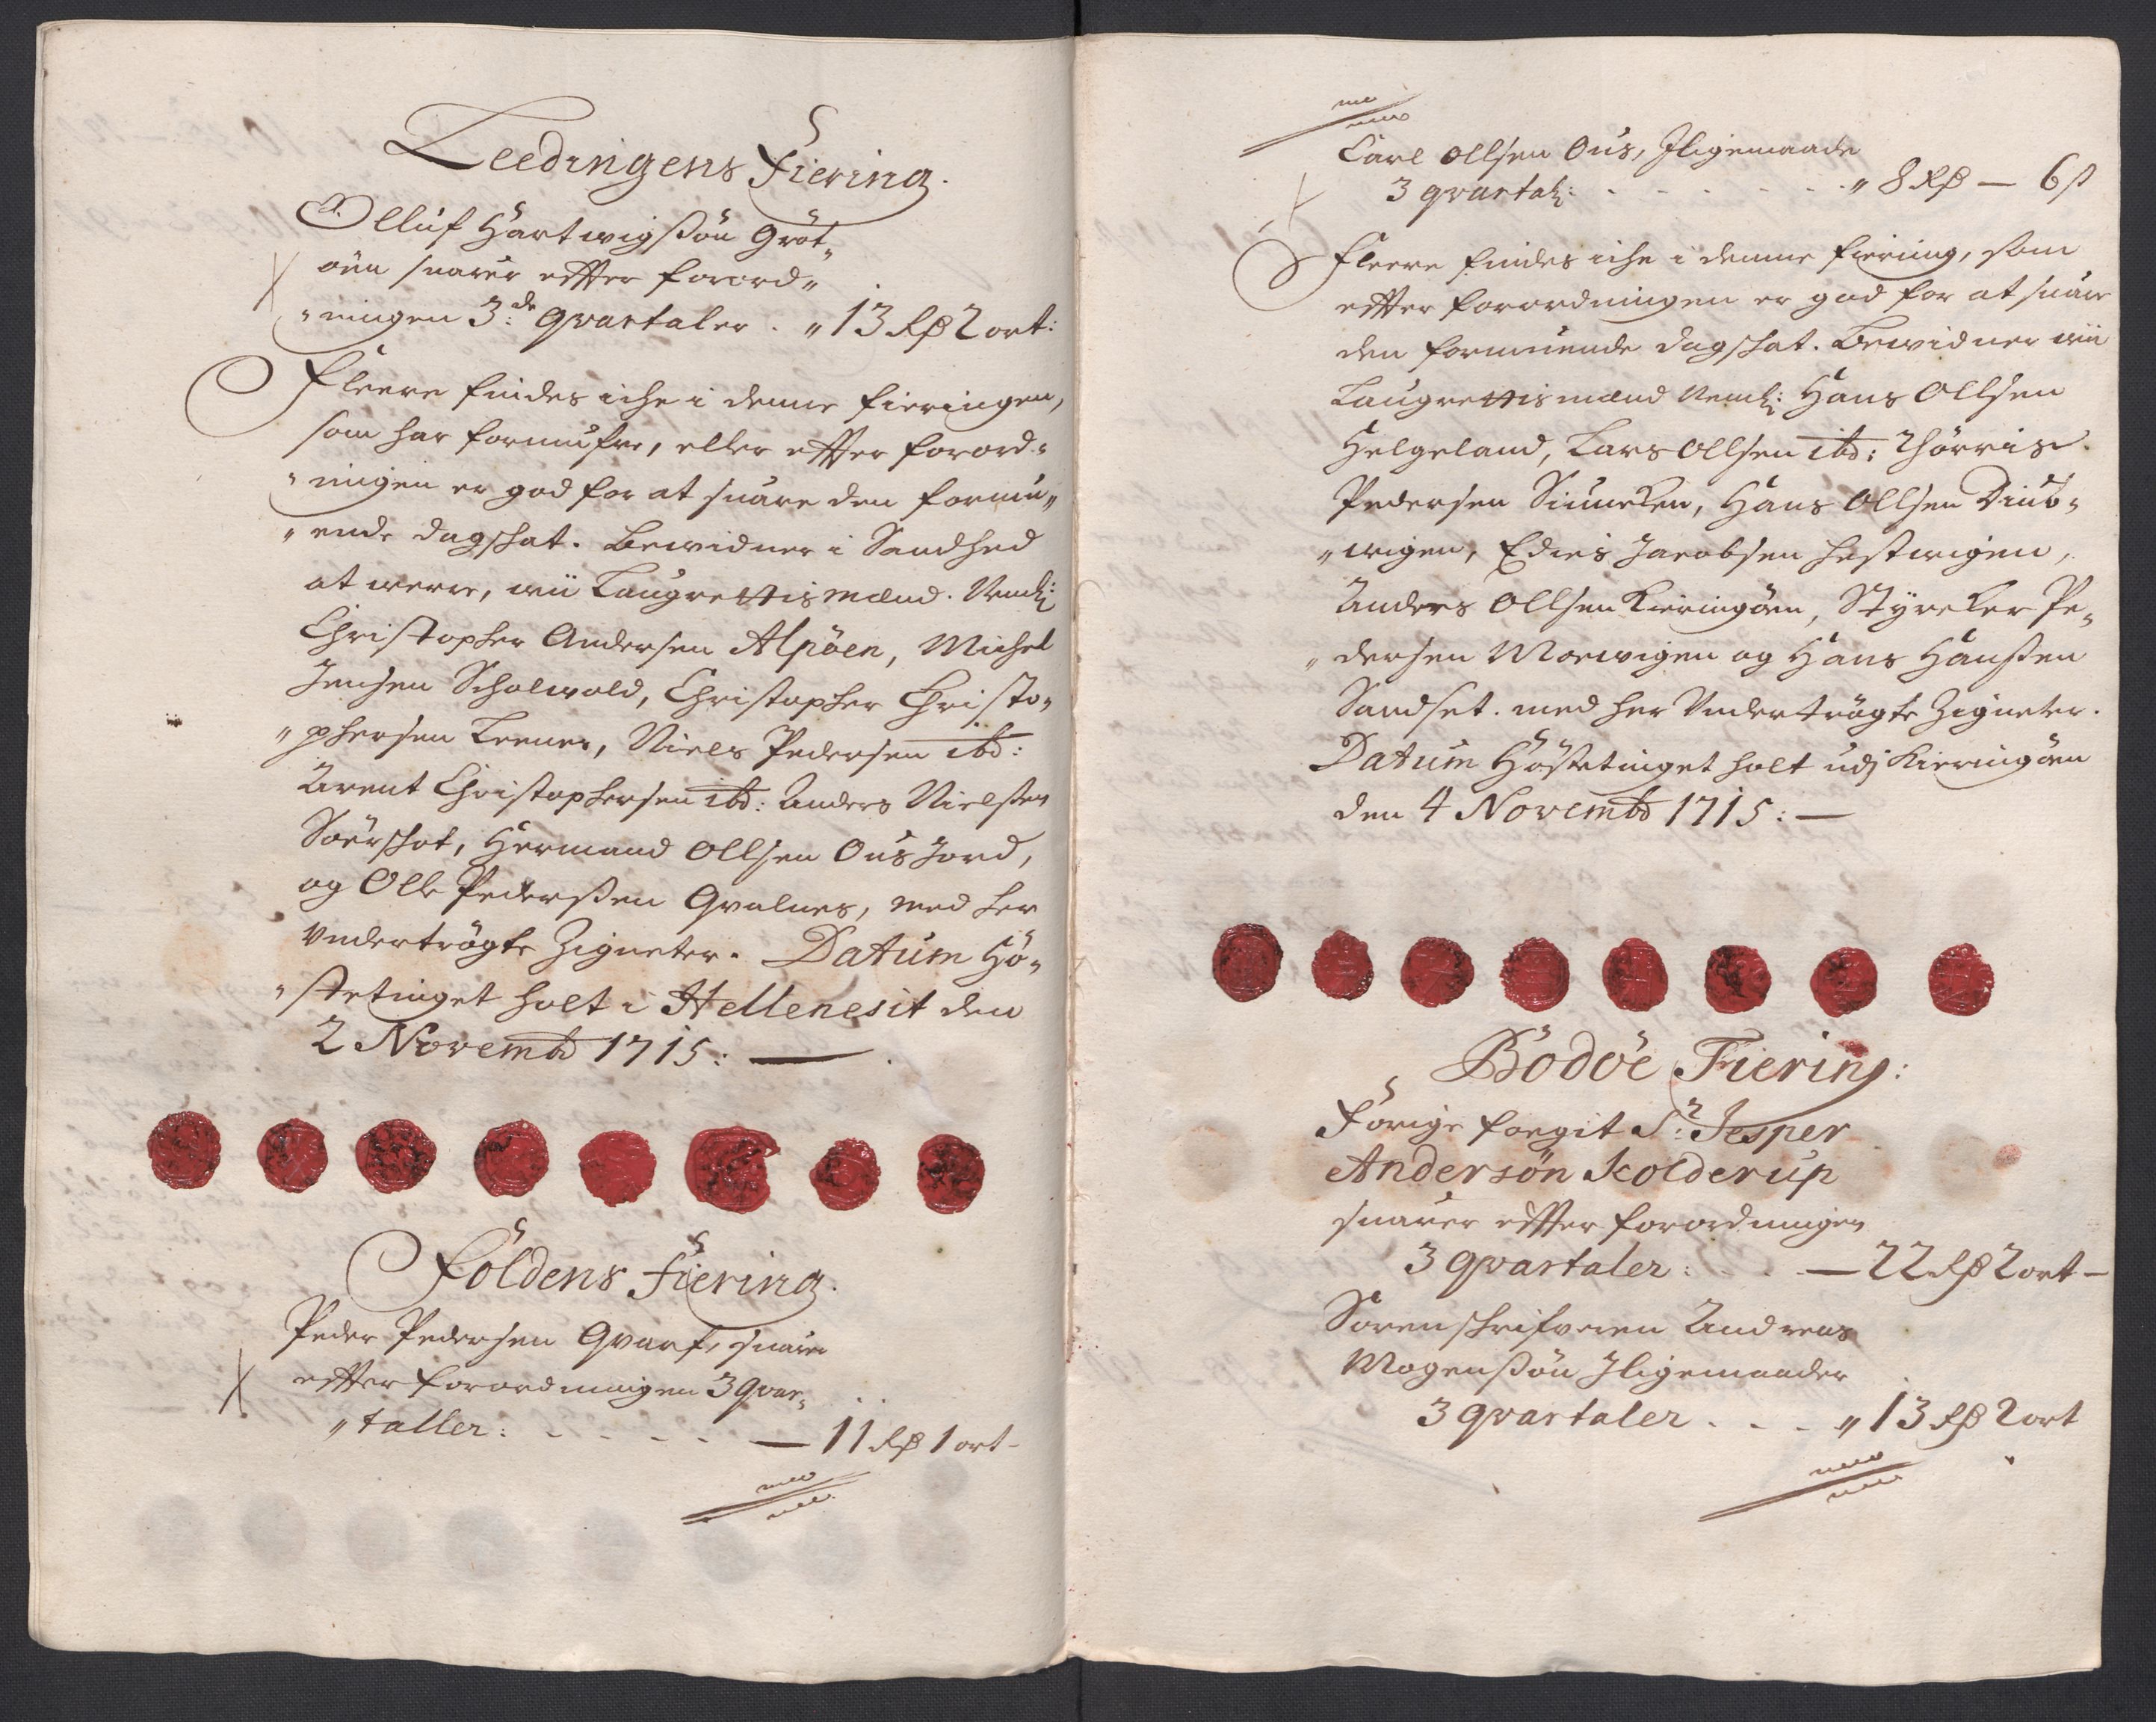 Leedingens Fiering.
Olluf Hartwigsøn Grøt-
øen suarer effter forord-
ningen 3de qvartaler . " 13 Rd 2 ort:
Fleere findes iche i denne fieringen,
som har formufve, eller effter forord-
ningen er god for at suare den formu-
ende dagschat. Bewidner i Sandhed
at were, wii Laugrettismænd. Neml:
Christopher Andersen Alpøen, Michel
Jensen Schalwold, Christopher Christo-
phersen Leenes, Niels Pedersen ibd:
Arent Christophersen ibd: Anders Nielsen
Soerschot, Hermand Ollsen Ousjord,
og Olle Pedersen Qvalnes, med her
Undertrøgte Zigneter. Datum Hø-
stetinget holt i Hellenesit den
2 Novembr 1715: —
Foldens Fiering.
Peder Pedersen Qvarf, suarer
effter forordningen 3 Qvar-
taller: - - - - — 11 Rd 1 ort -
Carl Ollsen Ous, Iligemaade
3 qvartal: - - - - - " 8 Rd — 6 ß
Fleere findes iche i denne fiering, som
effter forordningen er god for at suare
den formuende dagschat. Bewidner wii
Laugrettismænd Neml: Hans Ollsen
Helgeland, Lars Ollsen ibd: Thørris
Pedersen Hans Ollsen Diub-
wigen, Jacobsen Hestwigen,
Anders Ollsen Kieringøen, Styrcker Pe-
dersen Morwigen og Hans Hansen
Sandset. med her Undertrøgte Zigneter.
Datum Høstetinget holt udj Kieringøen
den 4 Novembr 1715: —
Bodøe Fiering:
Forige foegit Sr: Jesper
Andersøn Kolderup
suarer effter forordningen
3 qvartaler: - - — 22 Rd 2 ort —
Sorenschrifveren Andreas
Mogensøn Iligemaader
3 qvartaler . - - " 13 Rd 2 ort